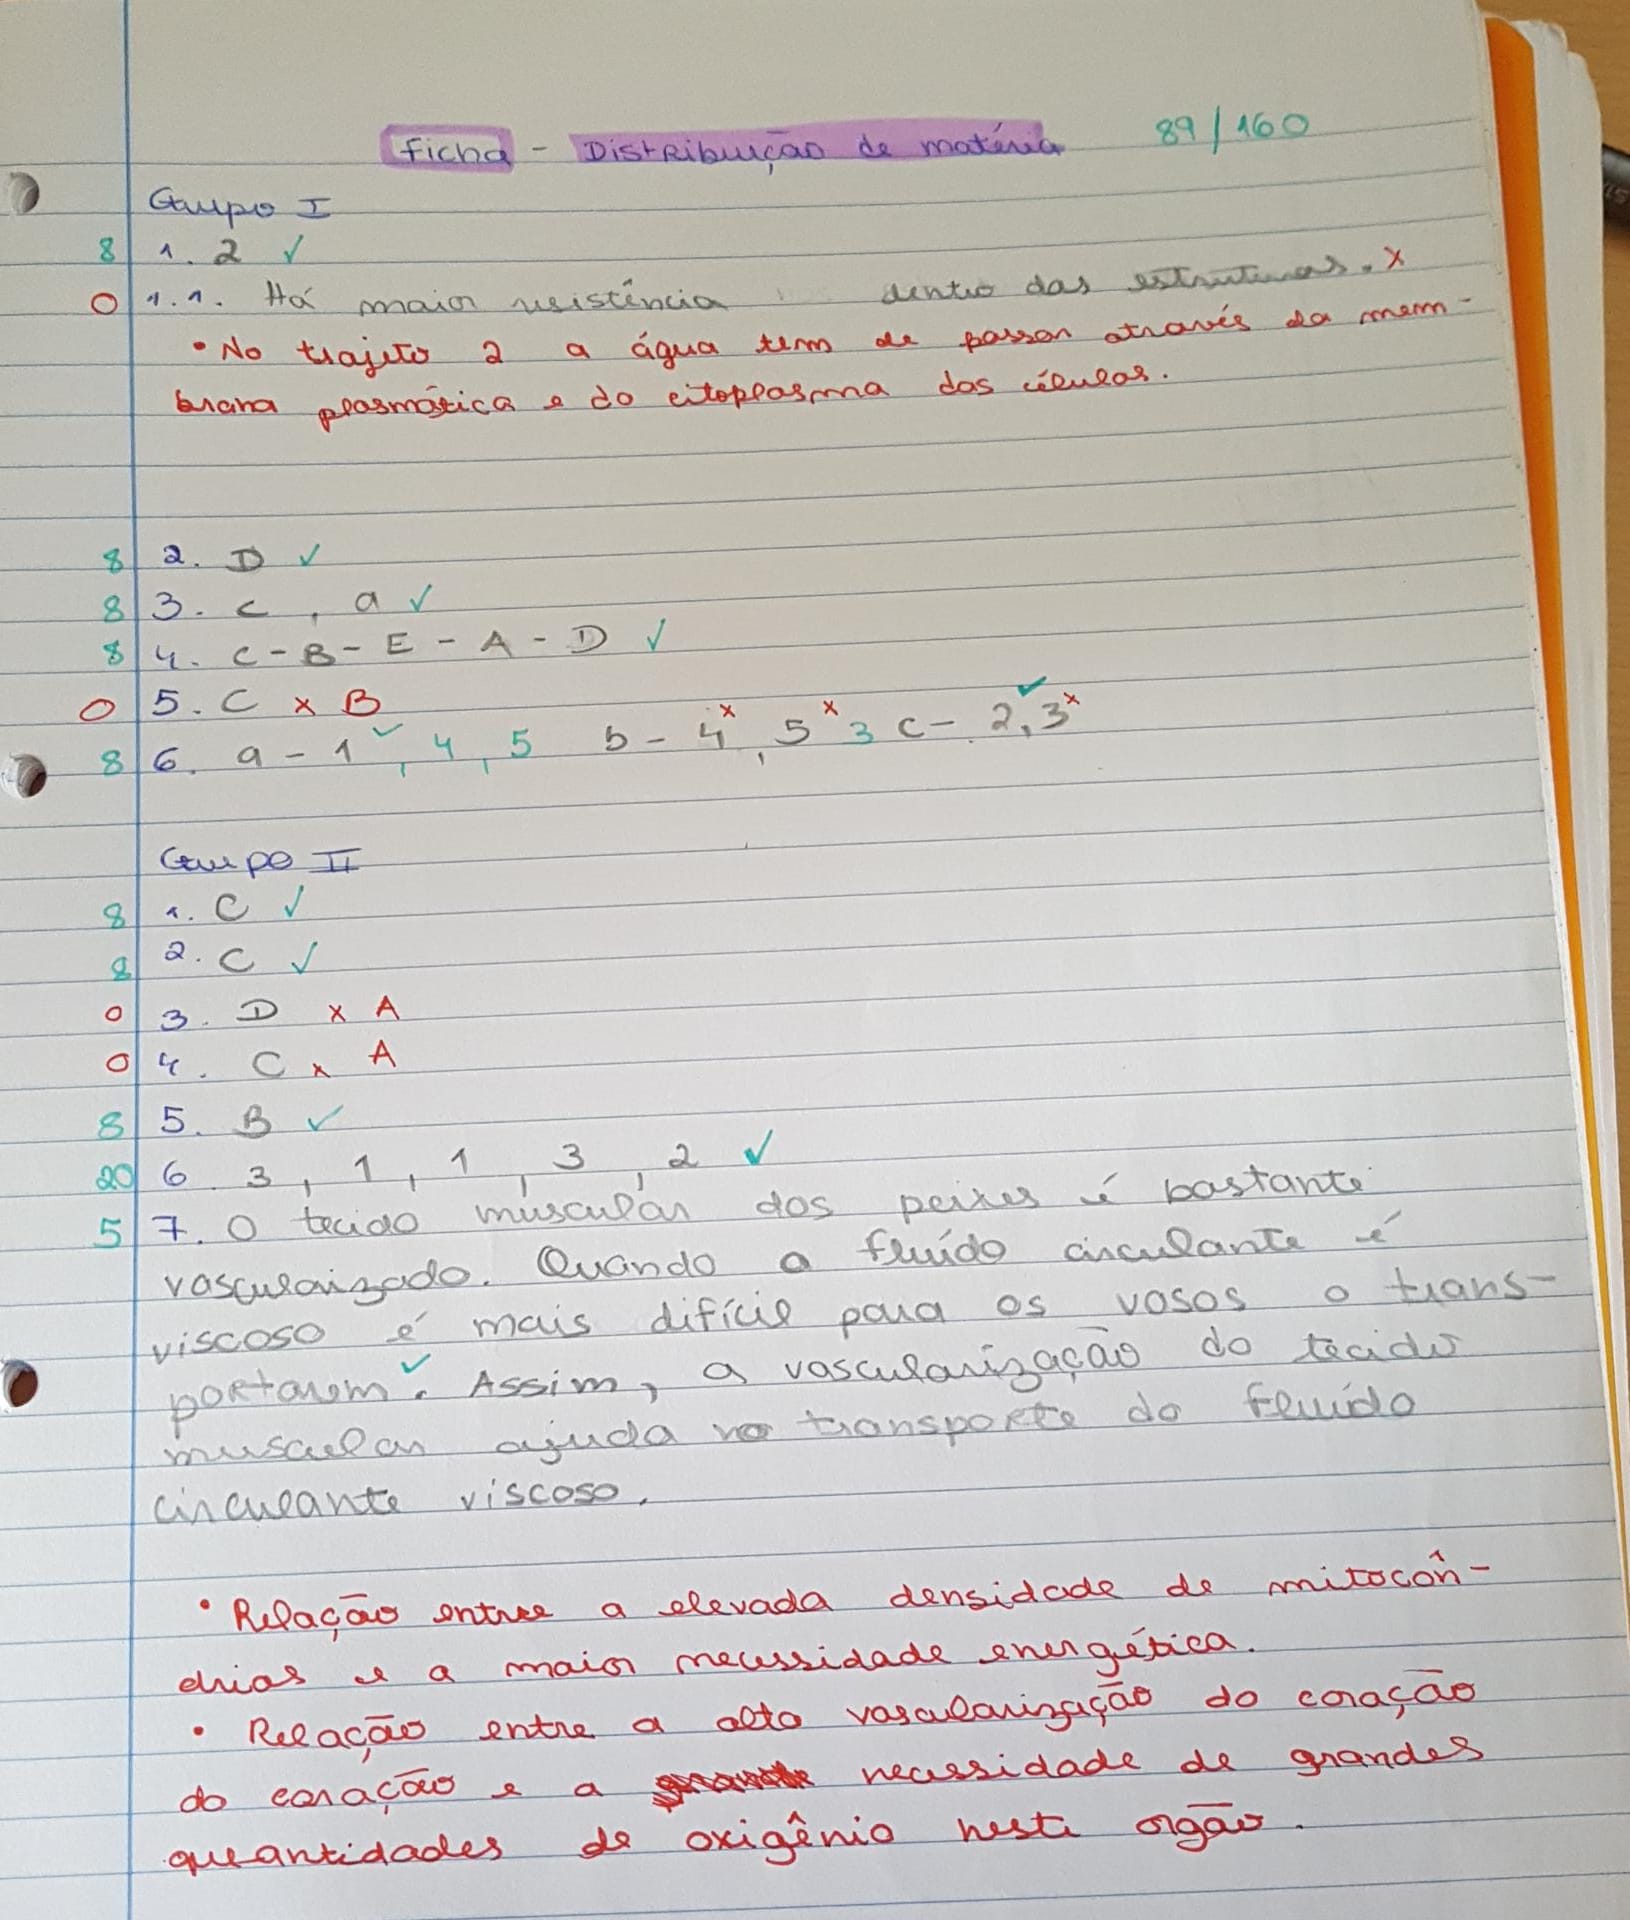 Ficha - Distribuição de matéria 89/160
Grupo I
8 1. 2 ✓
0 1.1. Há maior resistência dentro das estruturas. x
• No trajeto 2 a água tem de passar através da mem-
brana plasmática e do citoplasma das células.
8 2. D ✓
8 3. c, a ✓
8 4. C - B - E - A - D ✓
0 5. C x B
8 6. a - 1 ✓, 4, 5 b - 4 x, 5 x 3 c - 2 ✓, 3 x
Grupo II
8 1. C ✓
8 2. C ✓
0 3. D x A
0 4. C x A
8 5. B ✓
20 6. 3, 1, 1, 3, 2 ✓
5 7. O tecido muscular dos peixes é bastante
vascularizado. Quando o fluído circulante é
viscoso é mais difícil para os vasos o trans-
portarem ✓. Assim, a vascularização do tecido
muscular ajuda no transporte do fluído
circulante viscoso.
• Relação entre a elevada densidade de mitocôn-
drias e a maior necessidade energética.
• Relação entre a alta vascularização do coração
do coração e a necessidade de grandes
quantidades de oxigênio neste orgão.